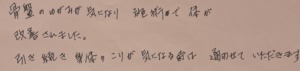 骨盤のゆがみが気になり 施術して 体が
改善されました。
引き続き 背体のこりが気になる為に 通わせていただきます